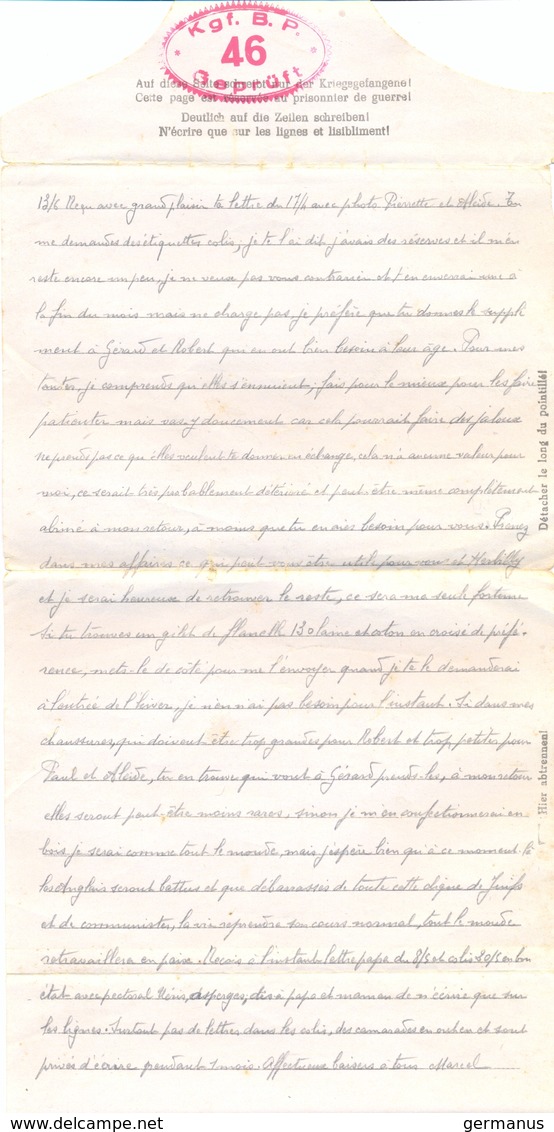 Kgf. B. P.
46
Geprüft
Auf diese Seite schreibt nur der Kriegsgefangene!
Cette page est réservée au prisonnier de guerre!
Deutlich auf die Zeilen schreiben!
N'écrire que sur les lignes et lisiblement!
13/6 Reçu avec grand plaisir ta lettre du 17/4 avec photo Pierrette et Alcide. Tu
me demandes des étiquettes colis, je te l'ai dit j'avais des réserves et il m'en
reste encore un peu, je ne veux pas vous contrarier et t'en enverrai une à
la fin du mois mais ne charge pas je préfère que tu donnes le supplé
ment à Gérard et Robert qui en ont bien besoin à leur âge. Pour mes
tantes, je comprends qu'elles s'ennuient, fais pour le mieux pour les faire
patienter mais vas-y doucement car cela pourrait faire des jaloux
ne prends pas ce qu'elles veulent te donner en échange, cela n'a aucune valeur pour
moi, ce serait très probablement détérioré et peut-être même complètement
abîmé à mon retour, à moins que tu en aies besoin pour vous. Prenez
dans mes affaires ce qui peut vous être utile pour vous et
et je serai heureux de retrouver le reste, ce sera ma seule fortune
Si tu trouves un gilet de flanelle 130 laine et coton en croisé de préfé
rence, mets-le de côté pour me l'envoyer quand je te le demanderai
à l'entrée de l'hiver, je n'en ai pas besoin pour l'instant. Si dans mes
chaussures, qui doivent être trop grandes pour Robert et trop petites pour
Paul et Alcide, tu en trouves qui vont à Gérard prends-les, à mon retour
elles seront peut-être moins rares, sinon je m'en confectionnerai en
bois je serai comme tout le monde, mais j'espère bien qu'à ce moment-là
les Anglais seront battus et que débarrassés de toute cette clique de Juifs
et de communistes, la vie reprendra son cours normal, tout le monde
retravaillera en paix. Reçois à l'instant lettre papa du 8/5 et colis 20/5 en bon
état avec pectoral, asperges, dis à papa et maman de n'écrire que sur
les lignes. Surtout pas de lettres dans les colis, des camarades en ont eu et sont
privés d'écrire pendant 1 mois. Affectueux baisers à tous Marcel
Détacher le long du pointillé!
Hier abtrennen!
germanus